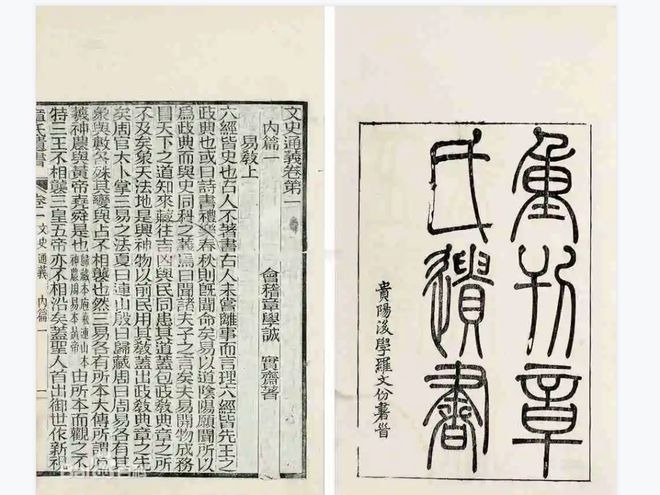 重刊章
氏遺書
貴陽後學羅文份書
文史通義卷第一
會稽章學誠 實齋著
內篇一
易教上
六經皆史也古人不著書古人未嘗離事而言理六經皆先王之
政典也或曰詩書禮樂春秋則既聞命矣易以道陰陽願聞所以
爲政典而與史同科之義焉曰聞諸夫子之言矣夫易開物成務
冒天下之道知來藏往吉凶與民同患其道蓋包政教典章之所
不及矣象天法地是興神物以前民用其教蓋出政教典章之先
矣周官大卜掌三易之法夏曰連山殷曰歸藏周曰周易各有其
象與數各殊其變與占不相襲也然三易各有所本大傳所謂庖
羲神農與黃帝堯舜是也歸藏本庖羲連山本神農周易本黃帝由所本而觀之不
特三王不相襲三皇五帝亦不相沿矣蓋聖人首出御世作新視
章氏遺書 卷一 文史通義 內篇一 一